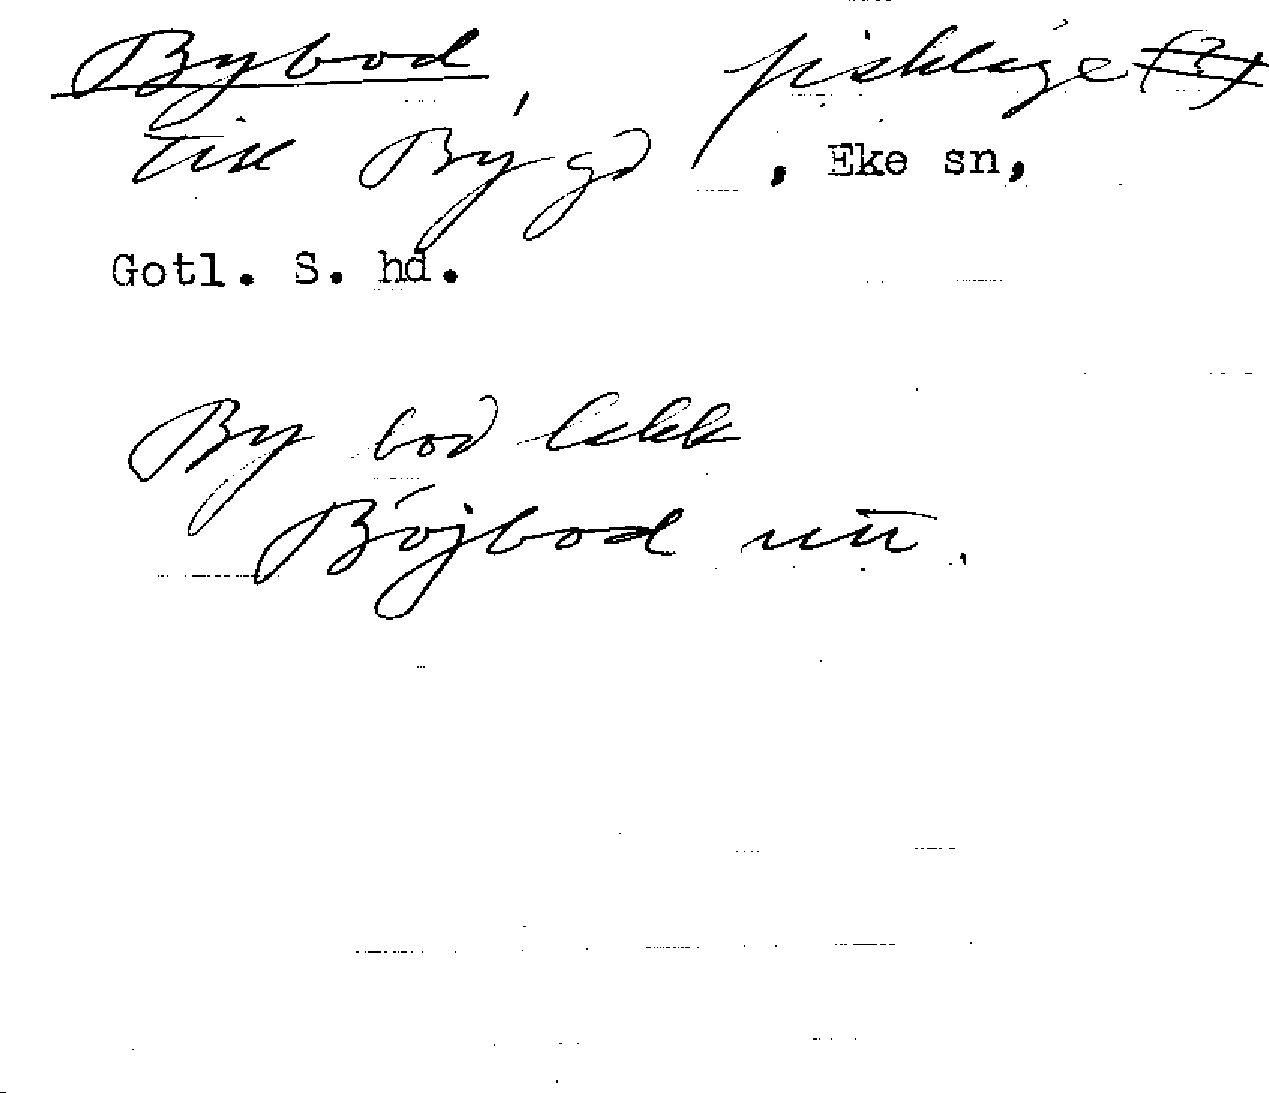 Bybod, fiskläge (?)
till By gd, Eke sn,
Gotl. S. hd.
By bod
Böjbod utt.